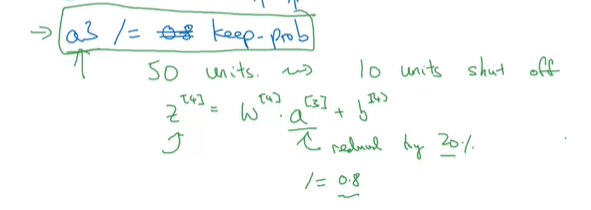 → a3 /= 0.8 keep-prob
50 units. ⇝ 10 units shut off
z^[4] = W^[4] · a^[3] + b^[4]
reduced by 20%.
/= 0.8